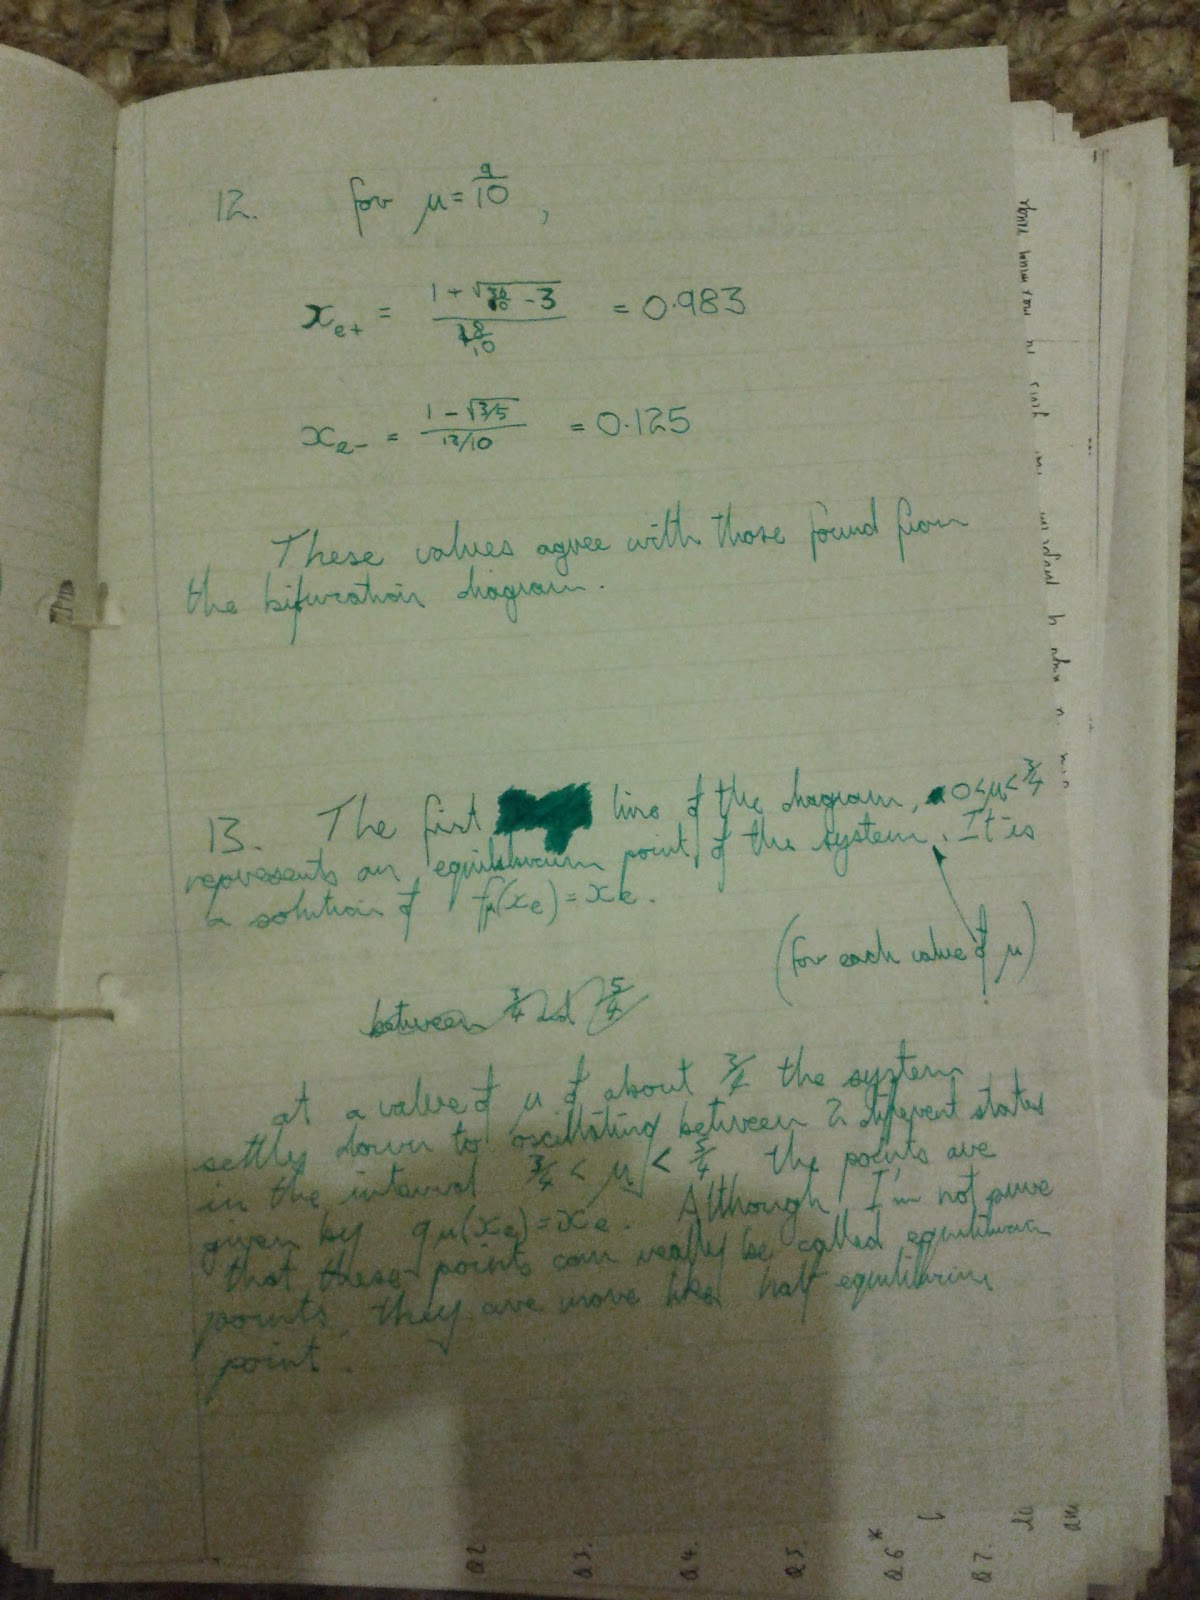 12. for μ = 9/10 ,
x_e+ = (1 + √(36/10 - 3)) / (18/10) = 0.983
x_e- = (1 - √3/5) / (18/10) = 0.125
These values agree with those found from
the bifurcation diagram.
13. The first line of the diagram, 0<μ<3/4
represents an equilibrium point of the system. It is
a solution of fμ(x_e) = x_e.
(for each value of μ)
between 3/4 and 5/4
at a value of μ of about 3/4 the system
settly down to oscillating between 2 different states
in the interval 3/4 < μ < 5/4 the points are
given by gμ(x_e) = x_e. Although I'm not pure
that these points can really be called equilibrium
points, they are more like half equilibrium
point.
Q2
Q3.
Q4.
Q5.
Q6*
Q7.